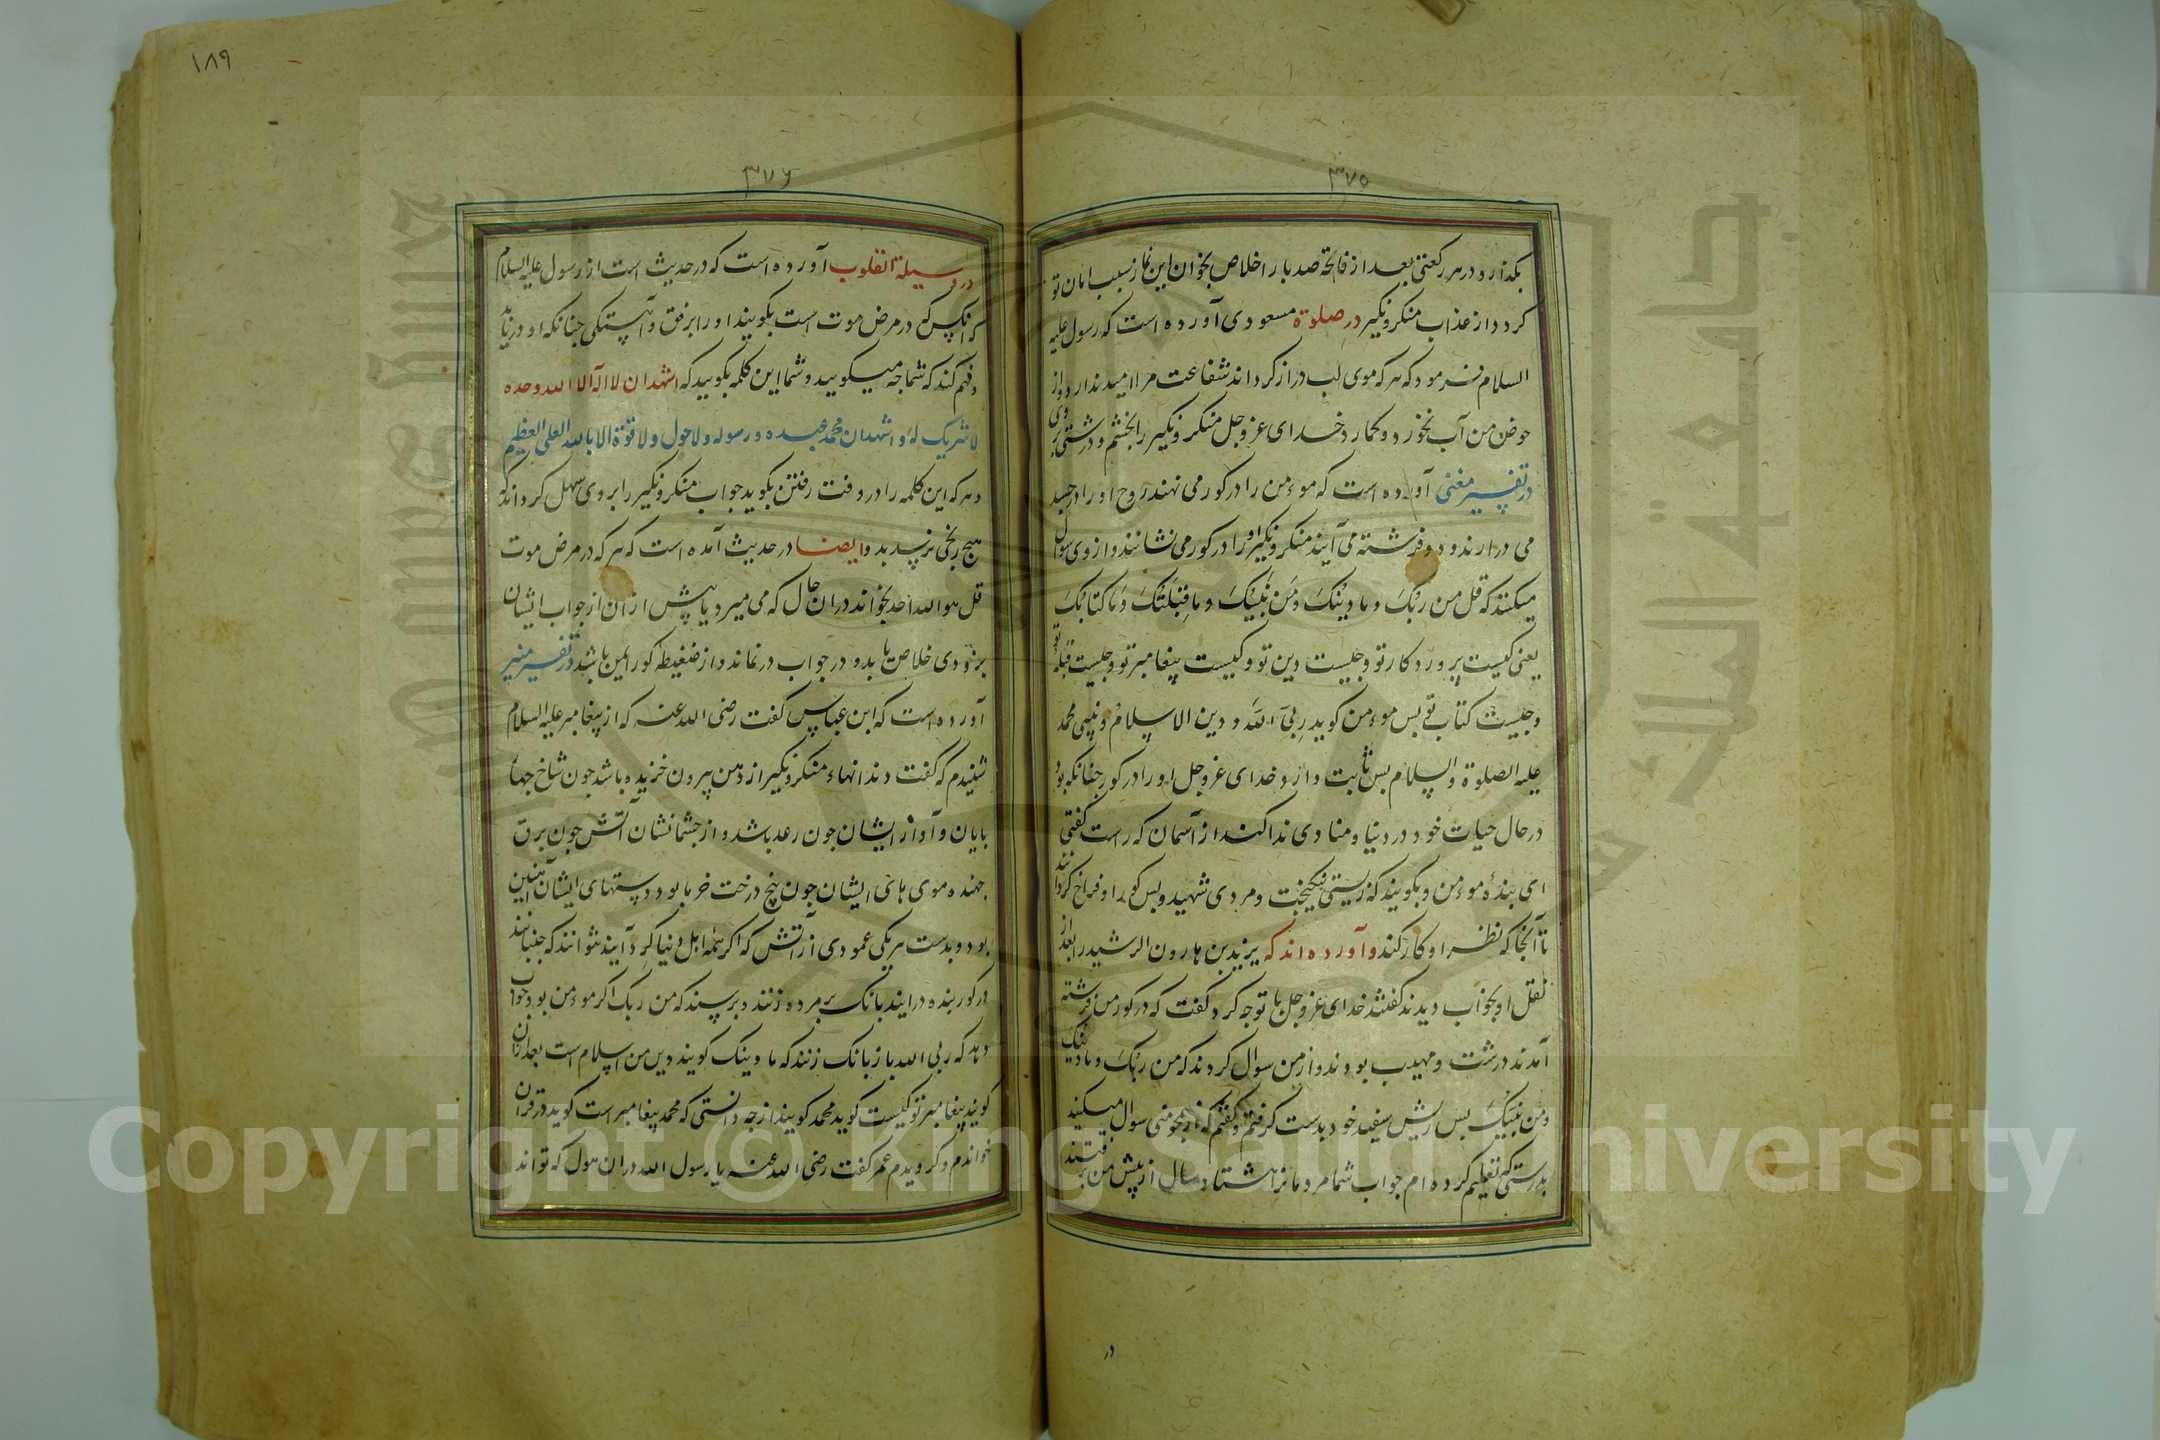 ١٨٩
٣٧٥
بکذارد و در هر رکعتی بعد از فاتحه صد بار اخلاص بخواند این نماز سبب امان تو
کردد از عذاب منکر و نکیر در صلوة مسعودی آورده است که رسول علیه
السلام فرمود که هر که موی لب دراز کرداند شفاعت مرا امید ندارد و از
حوض من آب نخورد و بکمارد خدای عز و جل منکر و نکیر را بخشم و درشتی بر وی
در تفسیر مغنی آورده است که موءمن را در کور می نهند روح او را در جسد
می درارند و دو فرشته می آیند منکر و نکیر او را در کور می نشانند و از وی سوال
میکنند که قل من ربک و ما دینک و من نبیک و ما قبلتک و ما کتابک
یعنی کیست پروردکار تو و جیست دین تو و کیست پیغامبر تو و جیست قبله تو
و جیست کتاب تو بس موءمن کوید ربی الله و دین الاسلام و نبیی محمد
علیه الصلوة و السلام بس ثابت دارد خدای عز و جل او را در کور جنانکه بود
در حال حیات خود در دنیا و منادی ندا کند از آسمان که راست کفتی
ای بندهٔ موءمن و بکویند که زیستی نیکبخت و مردی شهید و بس کور او فراخ کردانند
تا آنجا که نظر او کار کند و آورده اند که یزید بن هارون الرشید را بعد از
نقل او بخواب دیدند کفتند خدای عز و جل با تو جه کرد کفت که در کور من فرشته
آمدند درشت و مهیب بودند و از من سوال کردند که من ربک و ما دینک
و من نبیک بس ریش سفید خود بدست کرفتم و کفتم که از همجو منی سوال میکنید
بدرستی که تعلیم کرده ام جواب شما مردمانرا هشتاد سال از پیش من برفتند
در
٣٧٦
در وسیلة القلوب آورده است که در حدیث است از رسول علیه السلام
که آنکس که در مرض موت است بکویند او را برفق و آهستکی جنانکه او دریابد
و فهم کند که شما جه میکویید و شما این کلمه بکویید که اشهد ان لا اله الا الله وحده
لا شریک له و اشهد ان محمد عبده و رسوله و لا حول و لا قوة الا بالله العلی العظیم
و هر که این کلمه را در وقت رفتن بکوید جواب منکر و نکیر را بر وی سهل کرداند که
هیج رنجی نرسد بدو ایضا در حدیث آمده است که هر که در مرض موت
قل هو الله احد بخواند در ان حال که می میرد یا پیش از ان از جواب ایشان
بزودی خلاص یابد و در جواب در نماند و از ضغیطه کور ایمن باشد در تفسیر منیر
آورده است که ابن عباس کفت رضی الله عنه که از پیغامبر علیه السلام
شنیدم که کفت دندانهاء منکر و نکیر از دهن بیرون خزیده باشد جون شاخ جهار
بایان و آواز ایشان جون رعد باشد و از جشمانشان آتش جون برق
جهنده موی های ایشان جون بیخ درخت خرما بود دستهای ایشان آهنین
بود و بدست هر یکی عمودی از آتش که اکر همه اهل دنیا کرد آیند نتوانند که جنبانند
در کور بنده در ایند بانک بر مرده زنند و بر پرسند که من ربک اکر موءمن بود جواب
دهد که ربی الله باز بانک زنند که ما دینک کویند دین من اسلام است بعد از ان
کویند پیغامبر تو کیست کوید محمد کویند از جه دانستی که محمد پیغامبر است کوید در قران
خواندم و کرویدم عمر کفت رضی الله عنه یا رسول الله در ان هول که تواند
Copyright © King Saud University